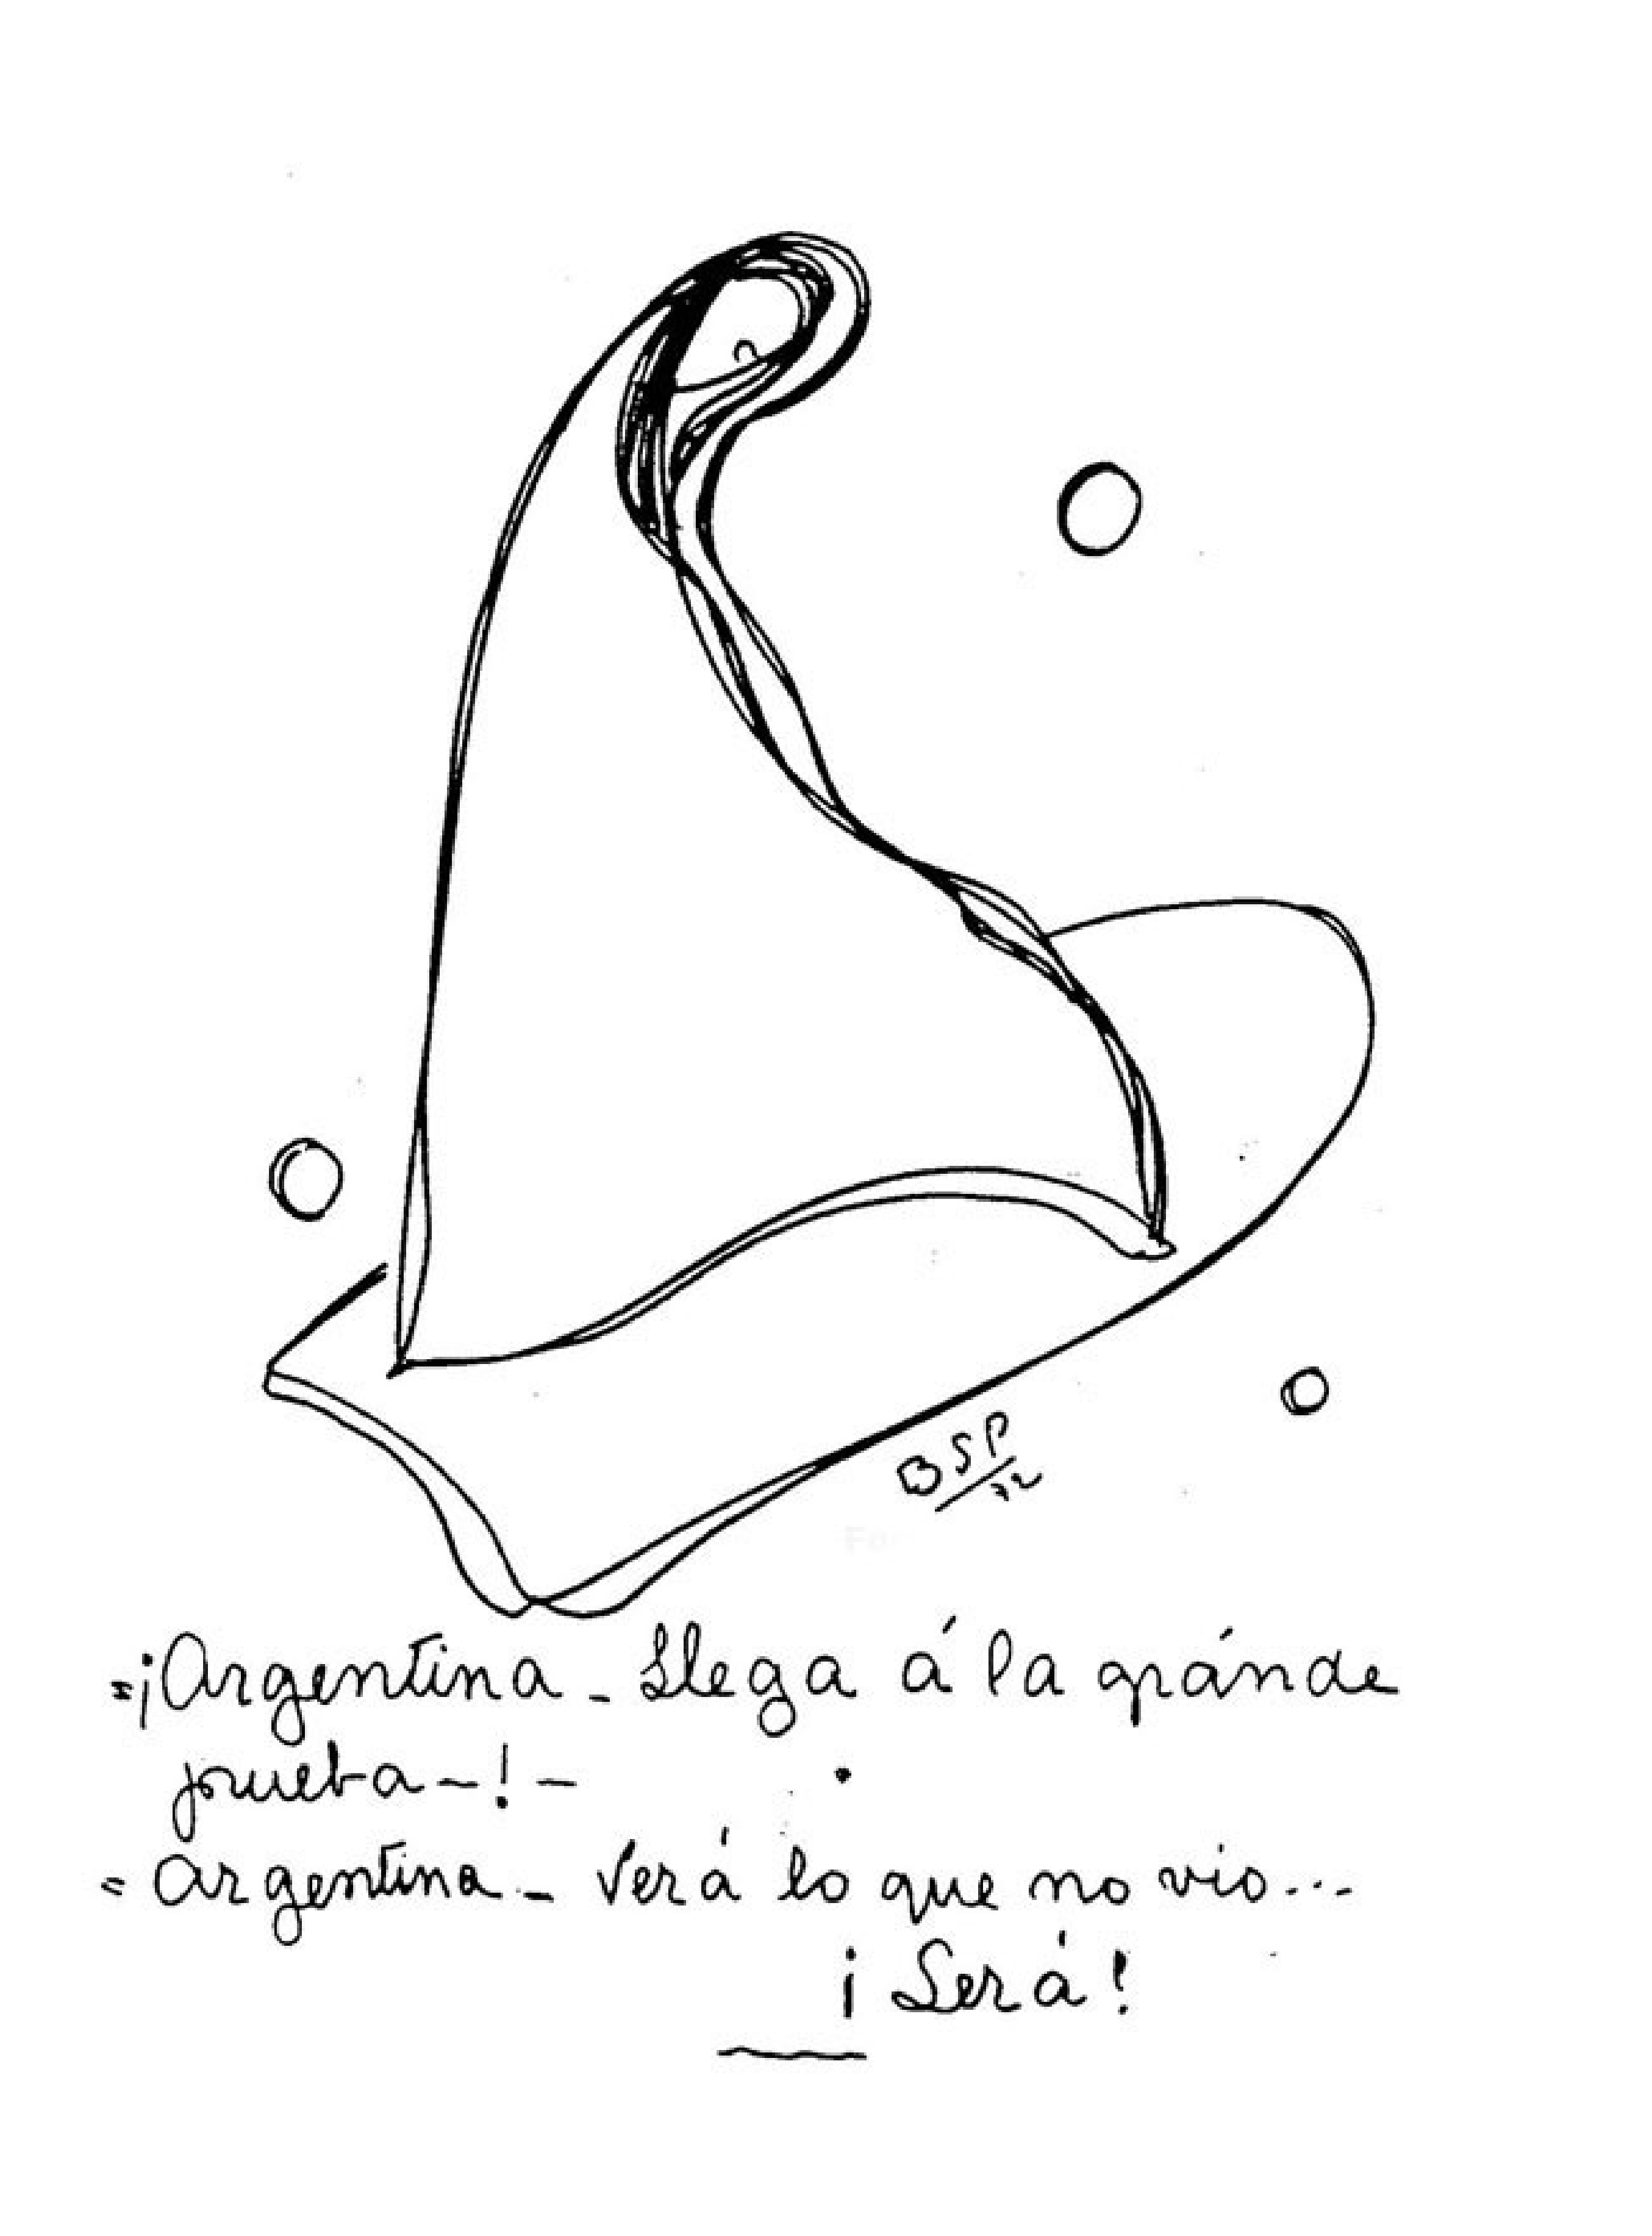 BSP
72
=¡Argentina - Llega á la gránde
prueba -!-
= Argentina - Verá lo que no vio...
¡Será!